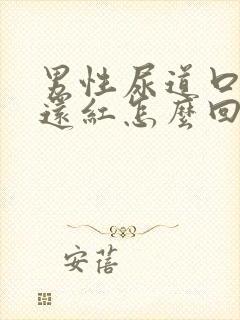 男性尿道口
還紅怎麼回
安蓓